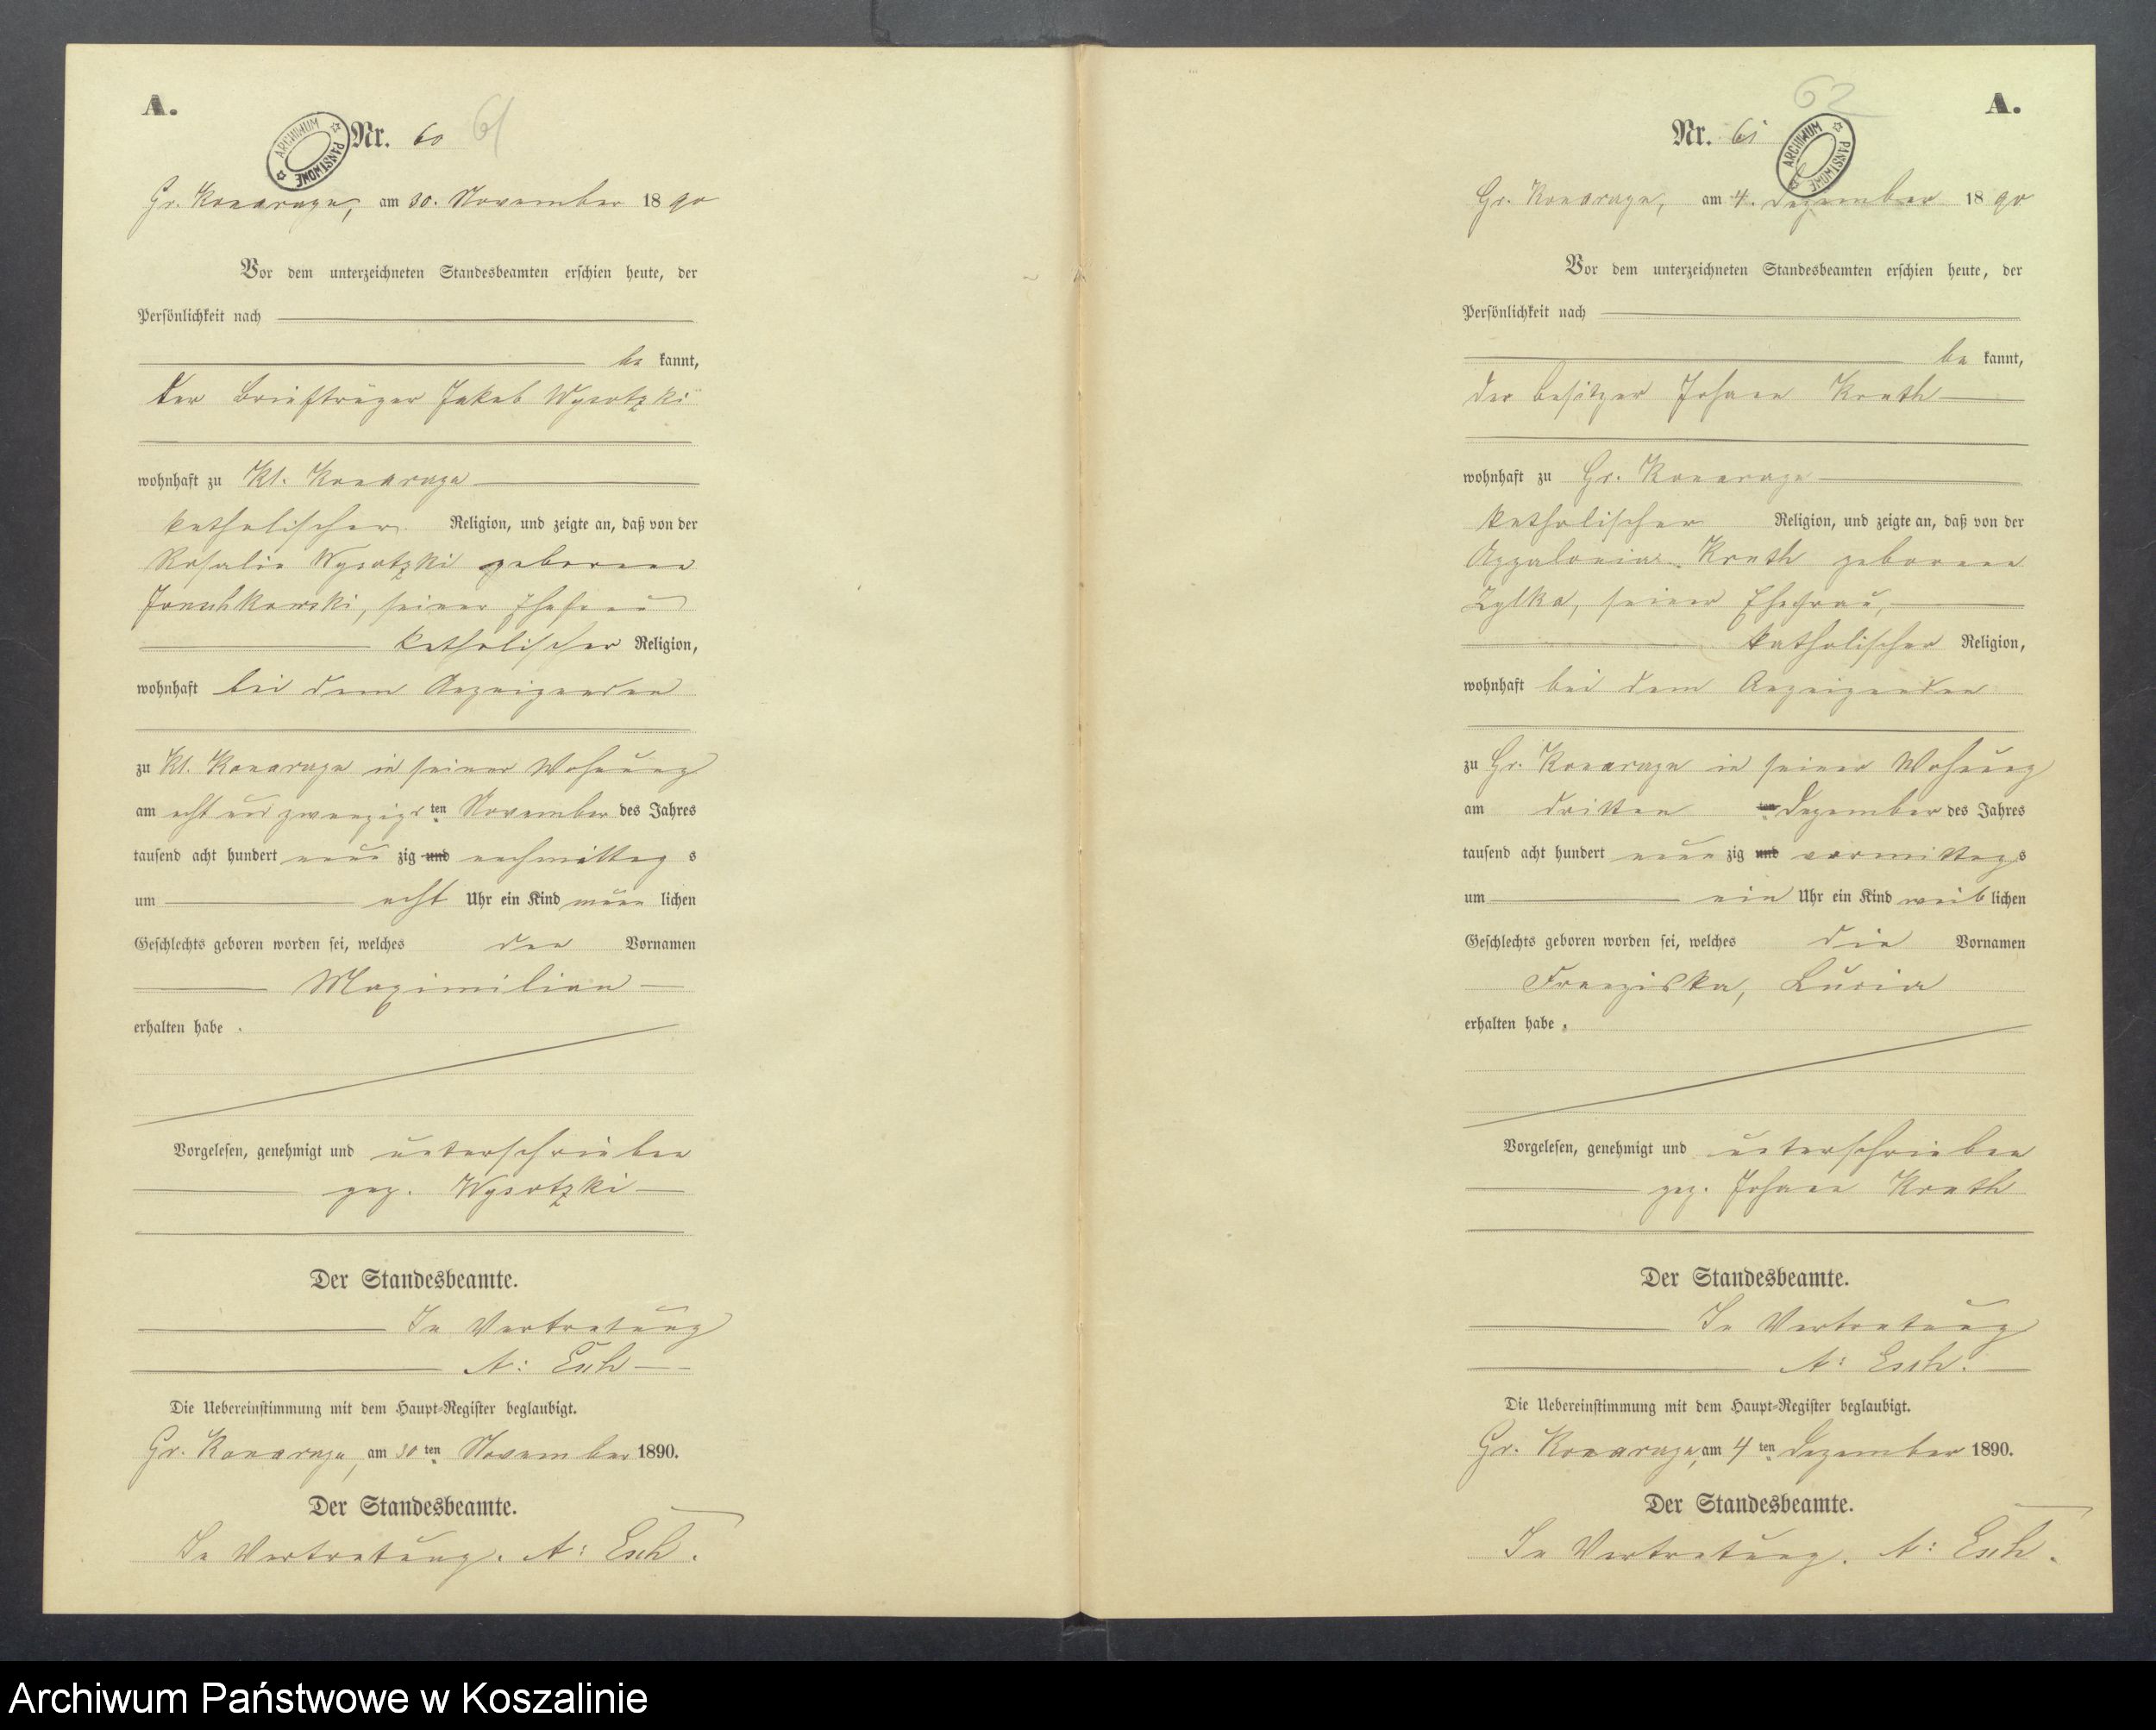 A.
ARCHIWUM PAŃSTWOWE
Nr. 60 61
Gr. Konarzyn, am 30. November 1890
Vor dem unterzeichneten Standesbeamten erschien heute, der
Persönlichkeit nach
be kannt,
der Briefträger Jakob Wysotzki
wohnhaft zu Kl. Konarzyn
katholischer Religion, und zeigte an, daß von der
Rosalie Wysotzki geborene
seiner Ehefrau
katholischer Religion,
wohnhaft bei dem Anzeigenden
zu Kl. Konarzyn in seiner Wohnung
am acht und zwanzigs ten November des Jahres
tausend acht hundert neun zig und nachmittag s
um acht Uhr ein Kind männ lichen
Geschlechts geboren worden sei, welches den Vornamen
Maximilian
erhalten habe.
Vorgelesen, genehmigt und unterschrieben
gez. Wysotzki
Der Standesbeamte.
In Vertretung
A: Esch
Die Uebereinstimmung mit dem Haupt-Register beglaubigt.
Gr. Konarzyn, am 30 ten November 1890.
Der Standesbeamte.
In Vertretung. A: Esch.
62
A.
Nr. 61
ARCHIWUM PAŃSTWOWE
Gr. Konarzyn, am 4. Dezember 1890
Vor dem unterzeichneten Standesbeamten erschien heute, der
Persönlichkeit nach
be kannt,
der Besitzer Johann Knuth
wohnhaft zu Gr. Konarzyn
katholischer Religion, und zeigte an, daß von der
Appalonia Knuth geborene
Zylka, seiner Ehefrau,
katholischer Religion,
wohnhaft bei dem Anzeigenden
zu Gr. Konarzyn in seiner Wohnung
am dritten ten Dezember des Jahres
tausend acht hundert neun zig und vormittags
um ein Uhr ein Kind weib lichen
Geschlechts geboren worden sei, welches die Vornamen
Franziska, Lucia
erhalten habe.
Vorgelesen, genehmigt und unterschrieben
gez. Johann Knuth
Der Standesbeamte.
In Vertretung
A: Esch.
Die Uebereinstimmung mit dem Haupt-Register beglaubigt.
Gr. Konarzyn, am 4 ten Dezember 1890.
Der Standesbeamte.
In Vertretung. A: Esch.
Archiwum Państwowe w Koszalinie